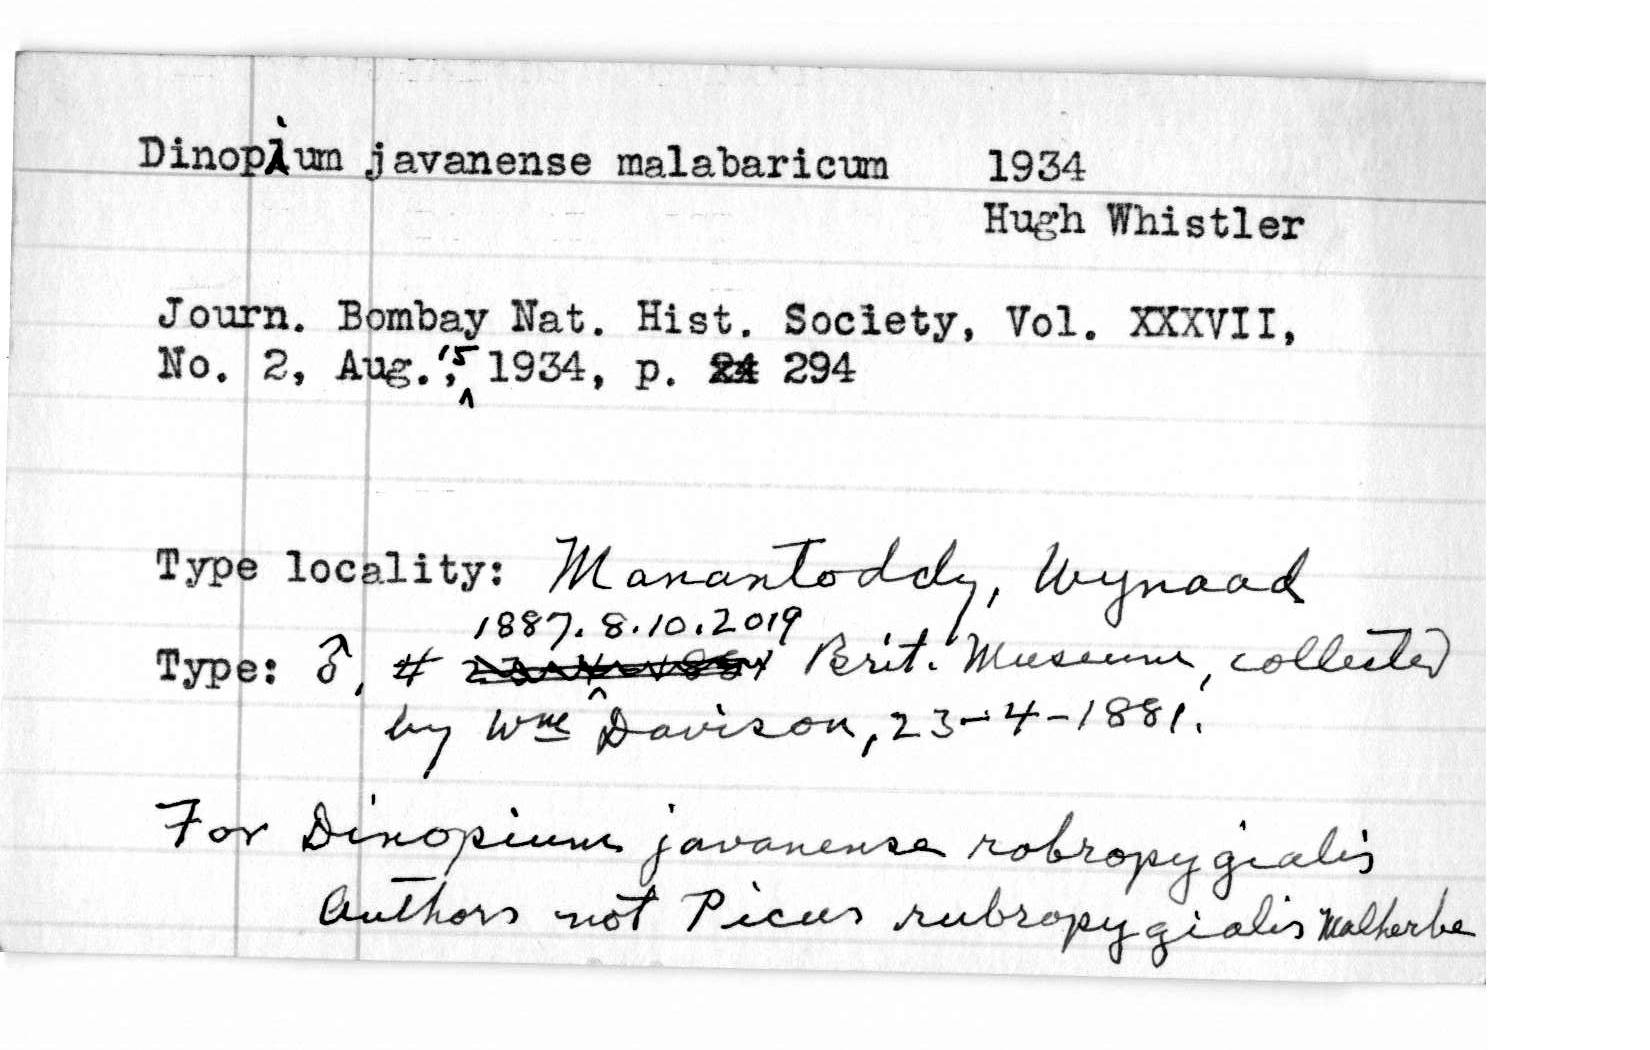 Dinopium javanense malabaricum 1934
Hugh Whistler
Journ. Bombay Nat. Hist. Society, Vol. XXXVII,
No. 2, Aug. 15, 1934, p. 294
Type locality: Manantoddy, Wynaad
1887.8.10.2019
Type: ♂, # Brit. Museum, collected
by Wm Davison, 23-4-1881.
For Dinopium javanense robropygialis
Authors not Picus rubropygialis Malherbe